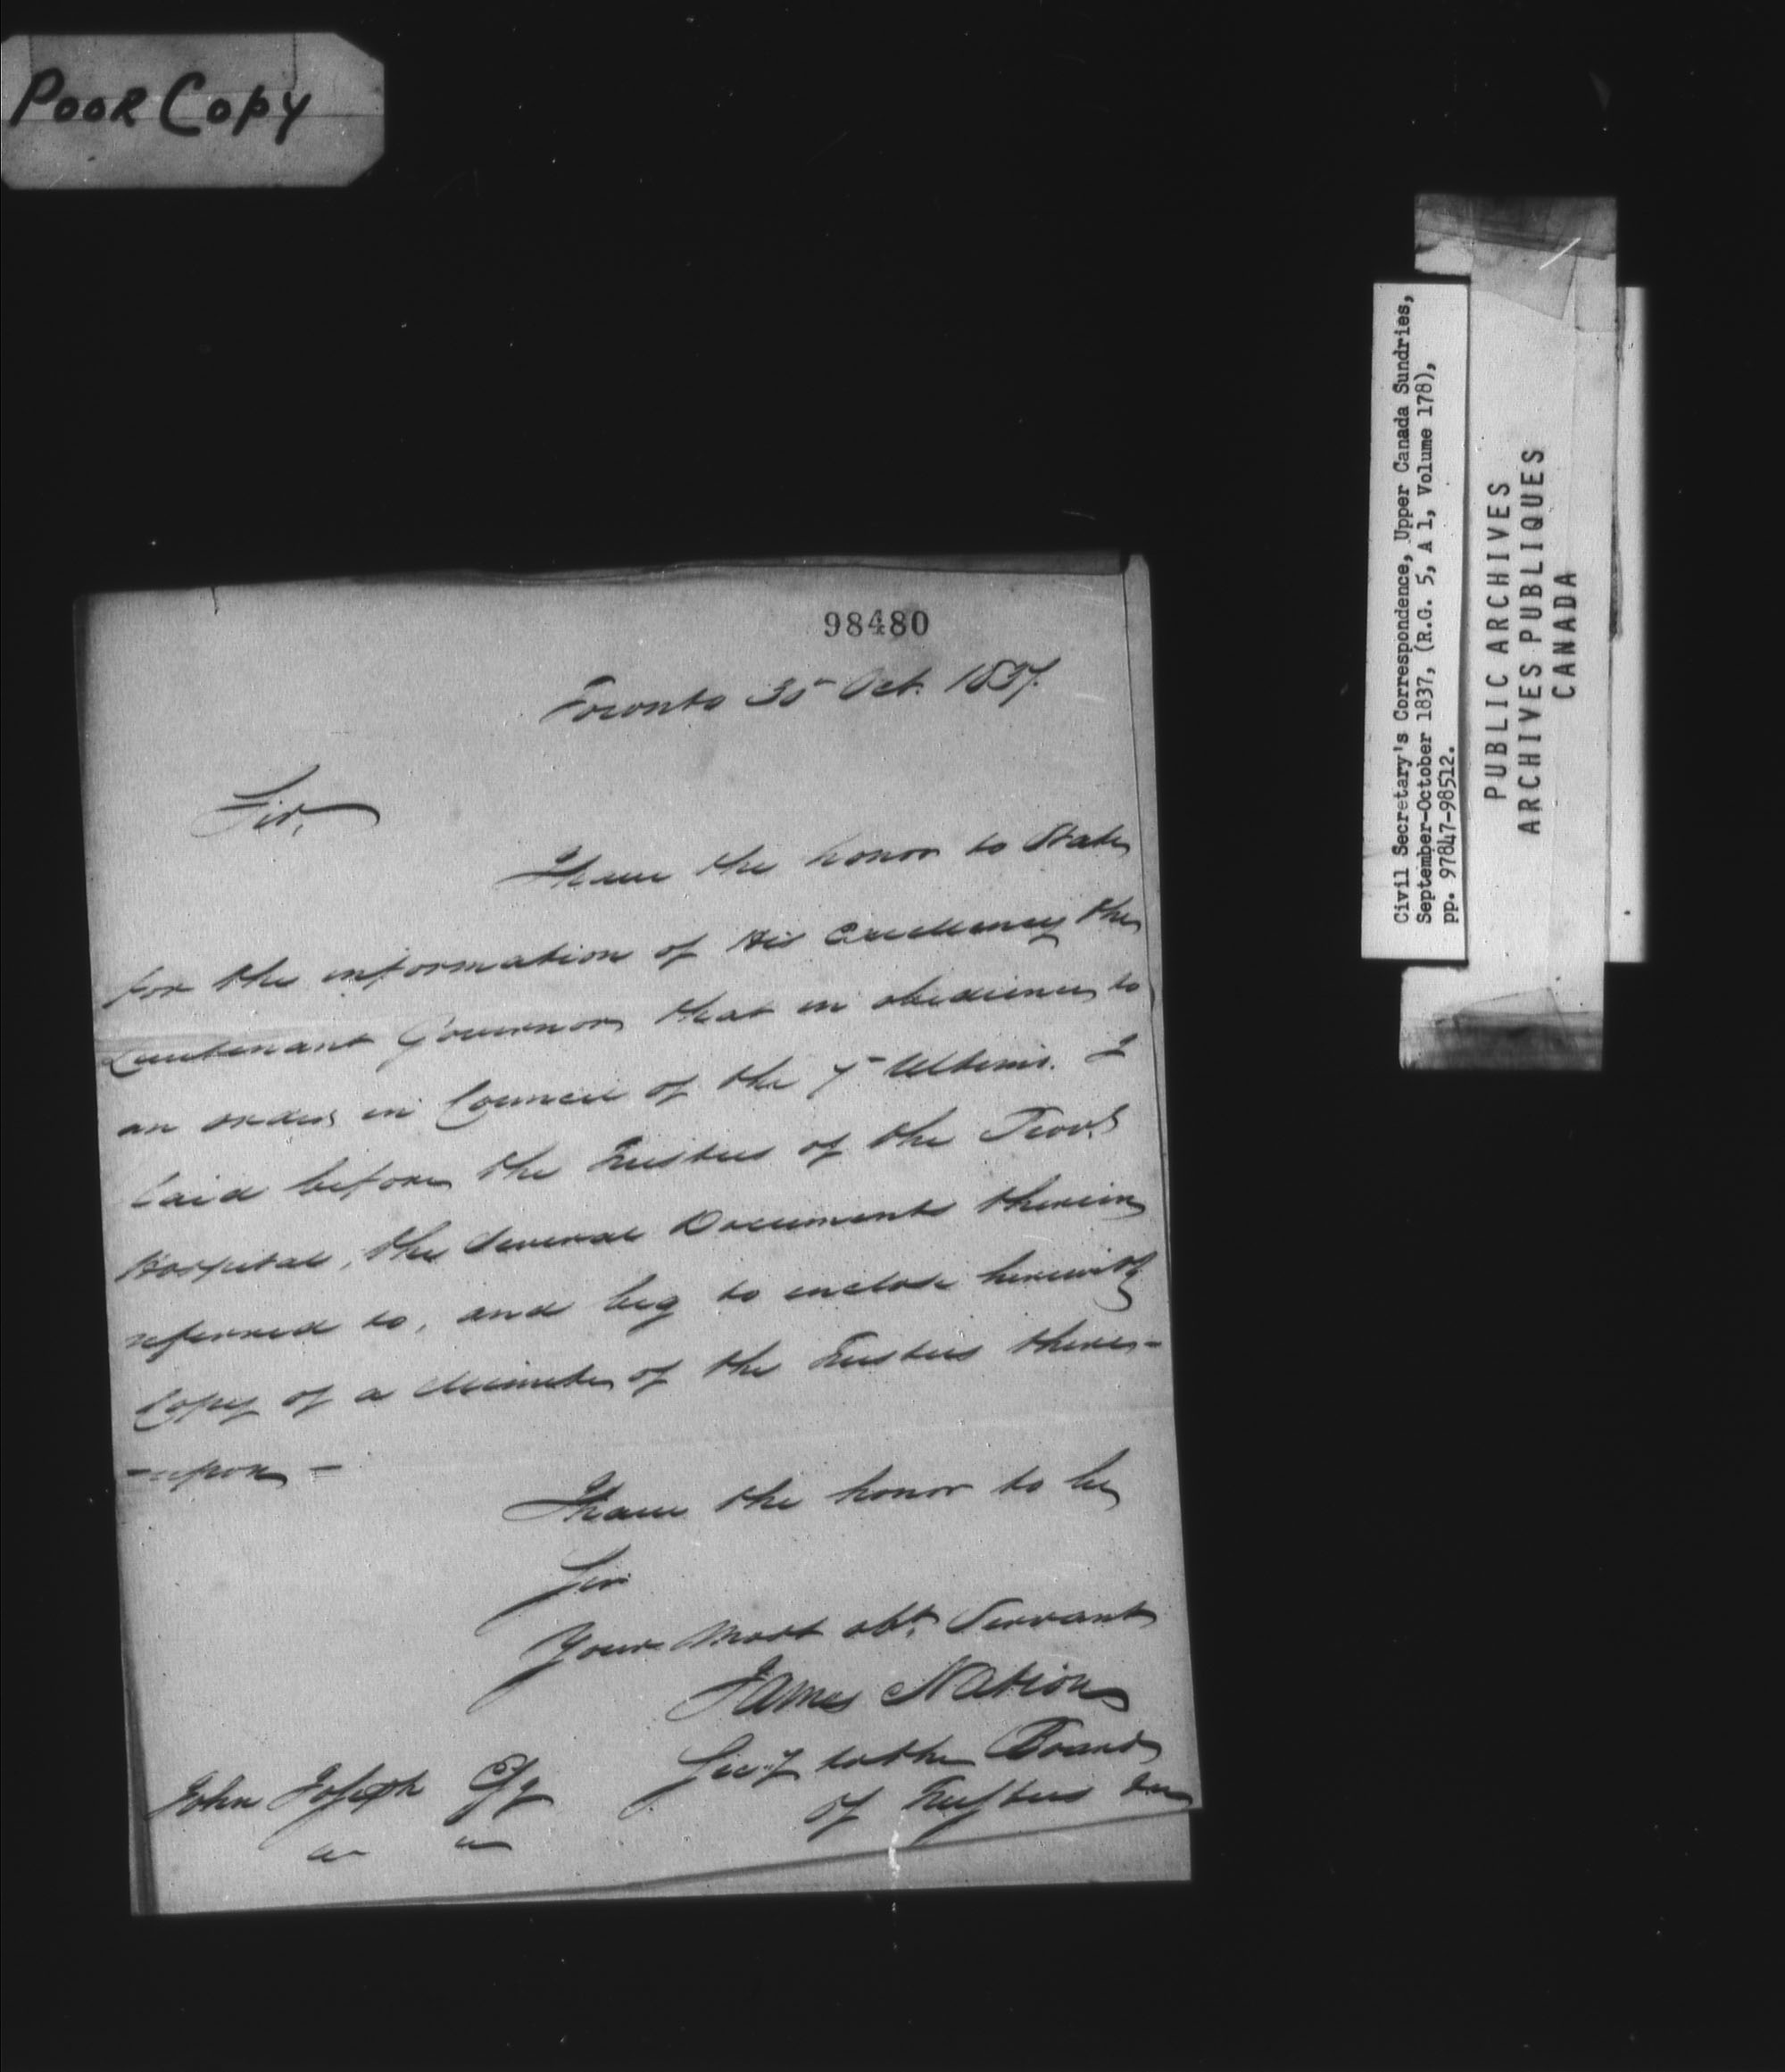 Poor Copy
98480
Toronto 30 Oct. 1837.
Sir,
I have the honor to State
for the information of His Excellency the
Lieutenant Governor that in obedience to
an order in Council of the 7 Ultimo. I
laid before the Trustees of the Provl
Hospital, the several Documents therein
referred to, and beg to enclose herewith
Copy of a Minute of the Trustees there-
-upon-
I have the honor to be
Sir
Your most obt. Servant
James Nation
Secy to the Board
of Trustees
John Joseph Esq
Civil Secretary's Correspondence, Upper Canada Sundries,
September-October 1837, (R.G. 5, A 1, Volume 178),
pp. 97847-98512.
PUBLIC ARCHIVES
ARCHIVES PUBLIQUES
CANADA